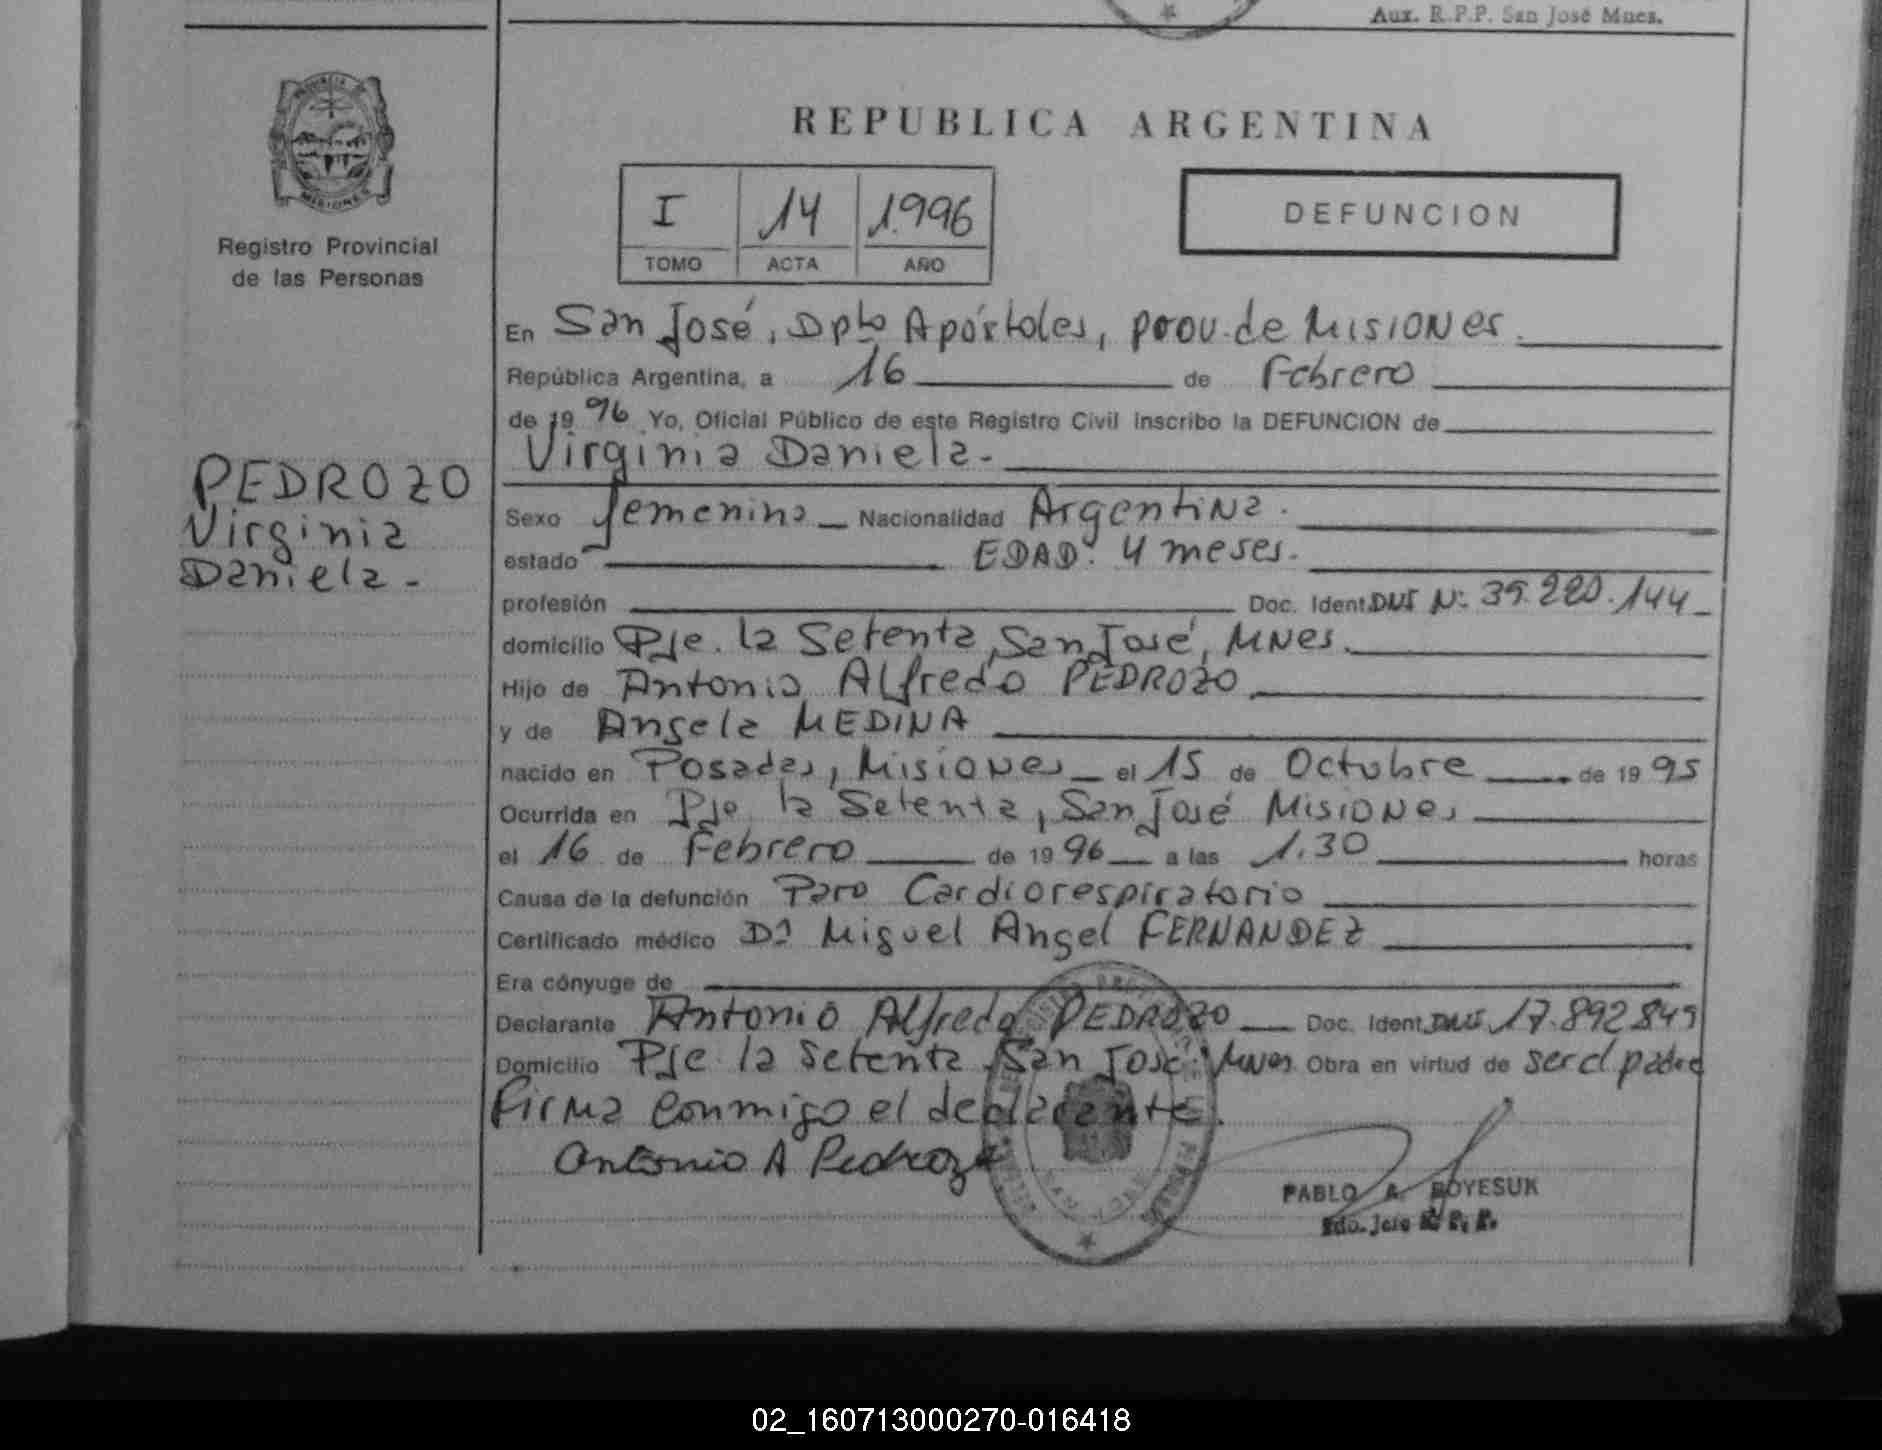 Aux. R.P.P. San José Mnes.
PROVINCIA DE
MISIONES
Registro Provincial
de las Personas
REPUBLICA ARGENTINA
I 14 1.996
TOMO ACTA AÑO
DEFUNCION
En San José, Dpto Apóstoles, prov. de Misiones.
República Argentina, a 16 de Febrero
de 1996 Yo, Oficial Público de este Registro Civil Inscribo la DEFUNCION de
Virginia Daniela.-
PEDROZO
Virginia
Daniela.-
Sexo femenino Nacionalidad Argentina.
estado EDAD: 4 meses.
profesión Doc. Ident. DNI Nº: 39.220.144
domicilio Pje. la Setenta, San José, MNes.
Hijo de Antonio Alfredo PEDROZO
y de Angela MEDINA
nacido en Posadas, Misiones el 15 de Octubre de 1995
Ocurrida en Pje. la Setenta, San José Misiones
el 16 de Febrero de 1996 a las 1.30 horas
Causa de la defunción Paro Cardiorespiratorio
Certificado médico Dr Miguel Angel FERNANDEZ
Era cónyuge de
Declarante Antonio Alfredo PEDROZO Doc. Ident. DNI 17.892849
Domicilio Pje la Setenta, San José, Mnes. Obra en virtud de ser el padre
Firma conmigo el declarante.
Antonio A Pedrozo
PABLO A. BOYESUK
R. P. P.
02_160713000270-016418